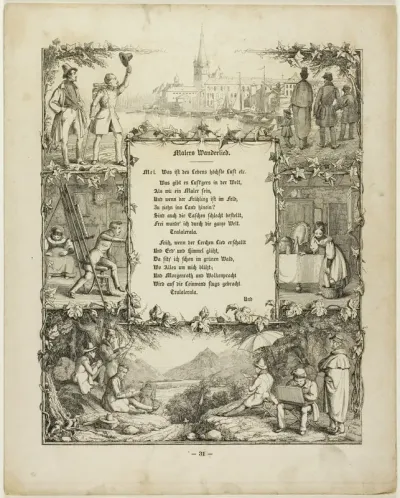 Malers Wanderlied.
Mel. Was ist des Lebens höchste Lust etc.
Was gibt es Lustigers in der Welt,
Als wie ein Maler sein,
Und wenn der Frühling ist im Feld,
Zu ziehn ins Land hinein?
Sind auch die Taschen schlecht bestellt,
Frei wandr' ich durch die ganze Welt.
Tralalerala.
Früh, wenn der Lerchen Lied erschallt
Und Erd' und Himmel glüht,
Da sitz' ich schon im grünen Wald,
Wo Alles um mich blüht;
Und Morgenroth und Wolkenpracht
Wird auf die Leinwand flugs gebracht.
Tralalerala.
Und
– 31 –